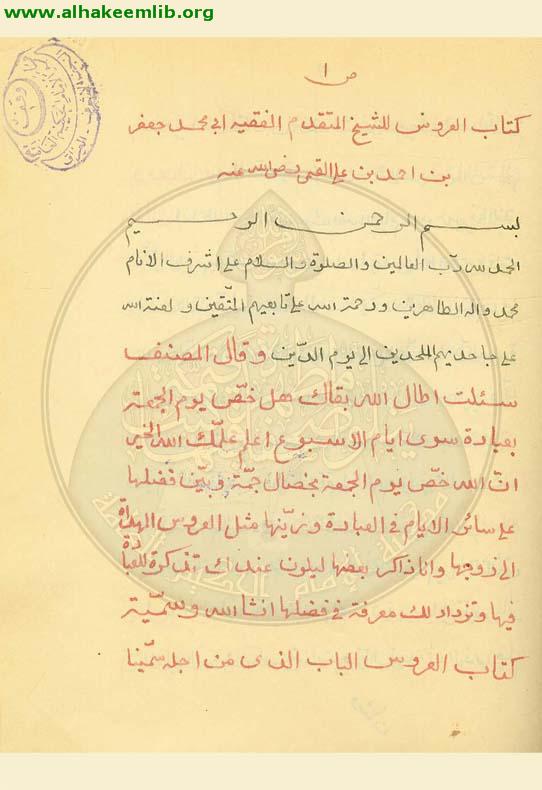 www.alhakeemlib.org
ص ١
كتاب العروس للشيخ المتقدم الفقيه ابي محمد جعفر
بن احمد بن علي القمي رضى الله عنه
بسم الله الرحمن الرحيم
الحمد لله رب العالمين والصلوة والسلام على اشرف الانام
محمد واله الطاهرين ورحمة الله على تابعيهم المتّقين ولعنة الله
على جاحديهم الملحدين الى يوم الدّين وقال المصنف
سئلت اطال الله بقاك هل خصّ يوم الجمعة
بعبادة سوى ايام الاسبوع اعلم علّمك الله الخير
انّ الله خصّ يوم الجمعة بخصال جمّة وبيّن فضلها
على سائر الايام في العبادة وزيّنها مثل العروس المهداة
الى زوجها وانا ذاكر بعضها ليكون عندك تذكرة للعبادة
فيها وتزداد لك معرفة في فضلها انشاالله وسمّيته
كتاب العروس الباب الذى من اجله سمّينا